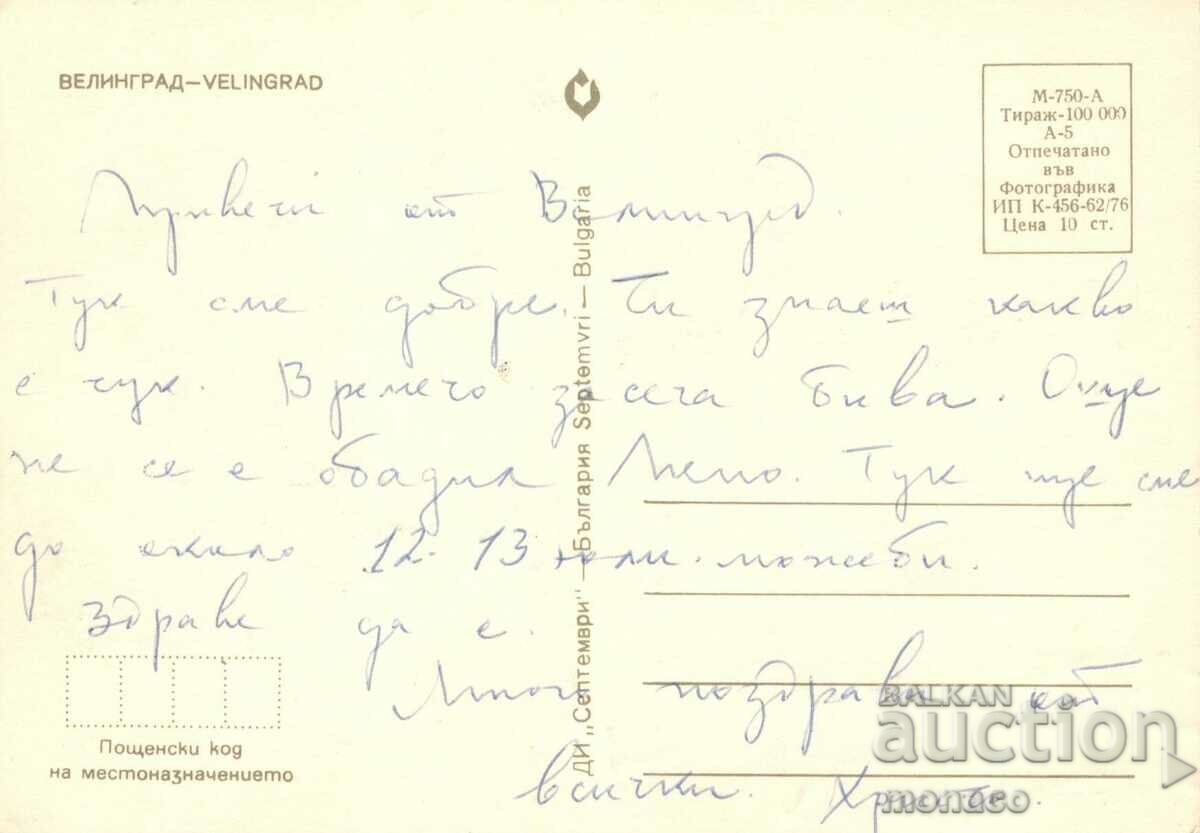 ВЕЛИНГРАД–VELINGRAD
М-750-А
Тираж-100 000
А-5
Отпечатано
във
Фотографика
ИП К-456-62/76
Цена 10 ст.
от Велинград.
Тук сме добре. Ти знаеш какво
е тук. Времето засега бива. Още
не се е обадил Тук ще сме
до около 12-13 юли. може би.
Здраве да е.
Много поздрави от
всички.
ДИ „Септември" — България Septemvri — Bulgaria
Пощенски код
на местоназначението
BALKAN
auction
monaco